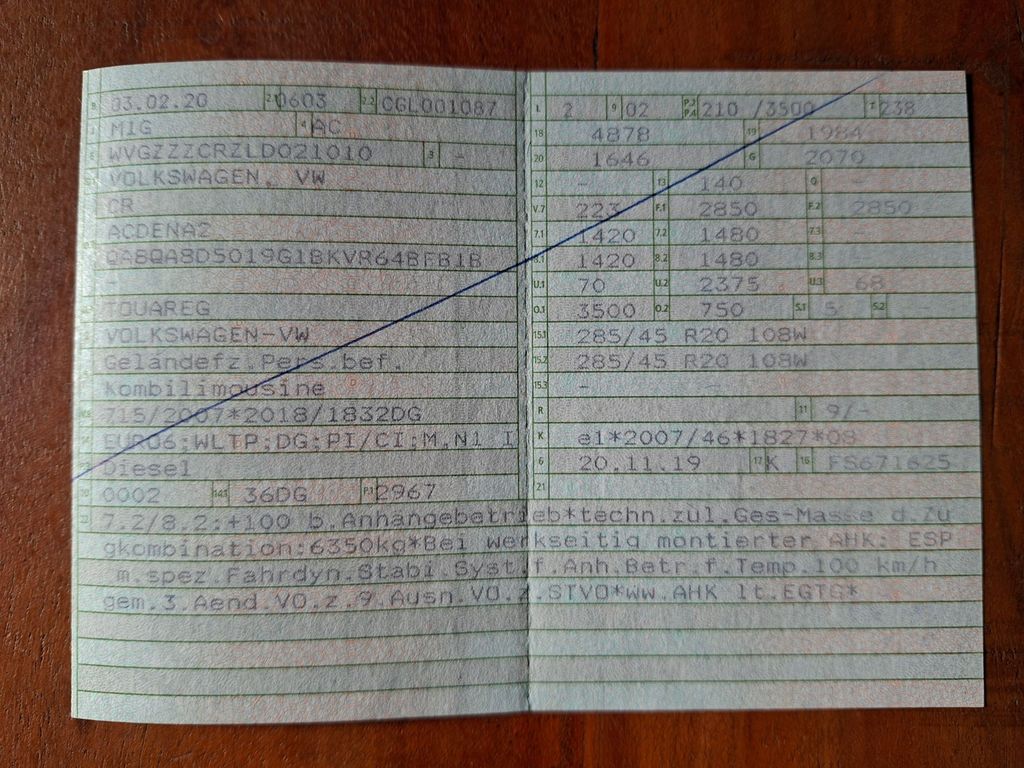 B 03.02.20 2.1 0603 2.2 CGL001087
J M1G 4 AC
E WVGZZZCRZLD021010 3 -
VOLKSWAGEN, VW
CR
ACDENAZ
QA8QA8D5019G1BKVR64BFB1B
-
TOUAREG
VOLKSWAGEN-VW
Geländefz.Pers.bef.
Kombilimousine
715/2007*2018/1832DG
EURO6;WLTP;DG;PI/CI;M,N1 I
Diesel
10 0002 14.1 36DG P.1 2967
L 2 9 02 P.2 P.4 210 /3500 T 238
18 4878 19 1984
20 1646 G 2070
12 - 13 140 Q -
V.7 223 F.1 2850 F.2 2850
7.1 1420 7.2 1480 7.3 -
8.1 1420 8.2 1480 8.3 -
U.1 70 U.2 2375 U.3 68
O.1 3500 O.2 750 S.1 5 S.2 -
15.1 285/45 R20 108W
15.2 285/45 R20 108W
15.3 -
R 11 9/-
K e1*2007/46*1827*08
6 20.11.19 17 K 16 FS671625
21
22 7.2/8.2:+100 b.Anhängebetrieb*techn.zul.Ges-Masse d.Zu
gkombination:6350kg*Bei werkseitig montierter AHK: ESP
m.spez.Fahrdyn.Stabi.Syst.f.Anh.Betr.f.Temp.100 km/h
gem.3.Aend.VO.z.9.Ausn.VO.z.STVO*ww.AHK lt.EGTG*